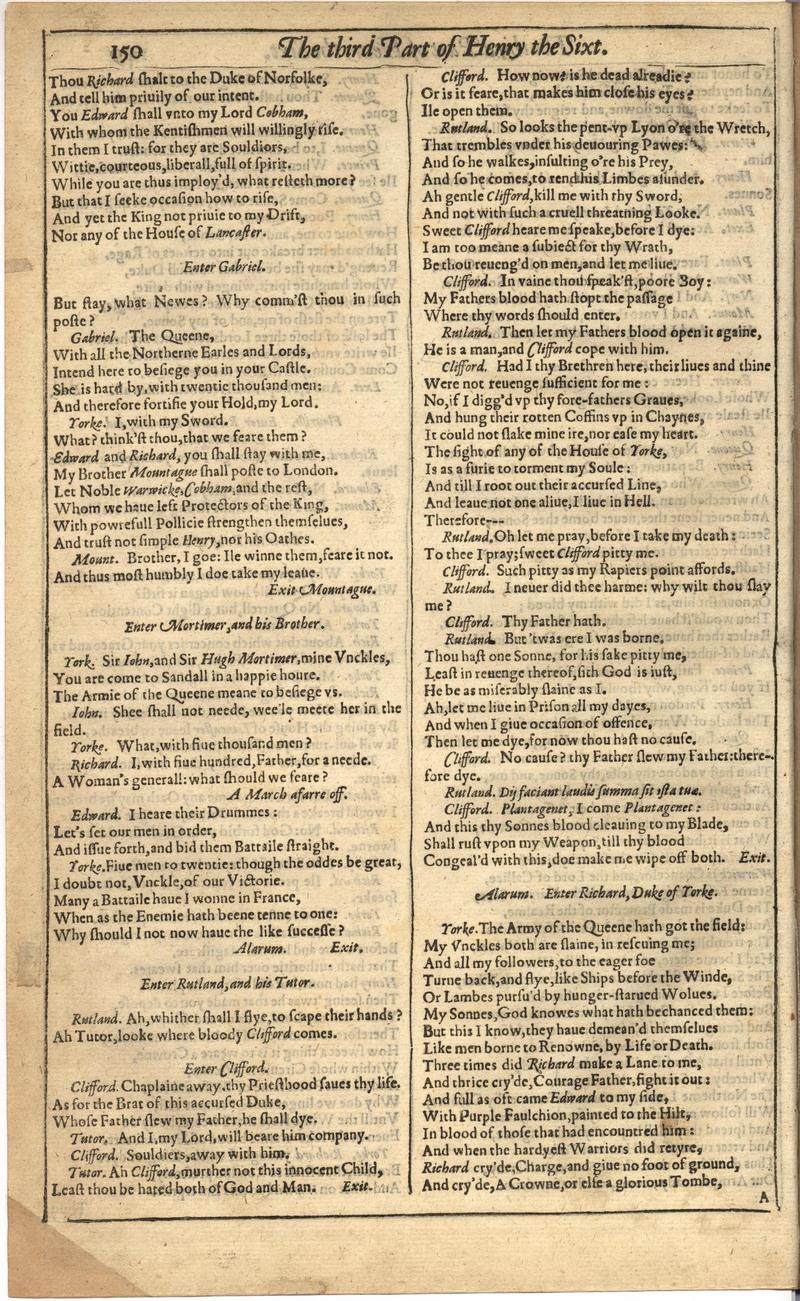 150
The third Part of Henry the Sixt.
Thou Richard ſhalt to the Duke of Norfolke,
And tell him priuily of our intent.
You Edward ſhall vnto my Lord Cobham,
With whom the Kentiſhmen will willingly riſe.
In them I truſt: for they are Souldiors,
Wittie, courteous, liberall, full of ſpirit.
While you are thus imploy'd, what reſteth more?
But that I ſeeke occaſion how to riſe,
And yet the King not priuie to my Drift,
Nor any of the Houſe of Lancaſter.
Enter Gabriel.
But ſtay, what Newes? Why comm'ſt thou in ſuch
poſte?
Gabriel. The Queene,
With all the Northerne Earles and Lords,
Intend here to beſiege you in your Caſtle.
She is hard by, with twentie thouſand men:
And therefore fortifie your Hold, my Lord.
Yorke. I, with my Sword.
What? think'ſt thou, that we feare them?
Edward and Richard, you ſhall ſtay with me,
My Brother Mountague ſhall poſte to London.
Let Noble Warwicke, Cobham, and the reſt,
Whom we haue left Protectors of the King,
With powrefull Pollicie ſtrengthen themſelues,
And truſt not ſimple Henry, nor his Oathes.
Mount. Brother, I goe: Ile winne them, feare it not.
And thus moſt humbly I doe take my leaue.
Exit Mountague.
Enter Mortimer, and his Brother.
York. Sir Iohn, and Sir Hugh Mortimer, mine Vnckles,
You are come to Sandall in a happie houre.
The Armie of the Queene meane to beſiege vs.
Iohn. Shee ſhall not neede, wee'le meete her in the
field.
Yorke. What, with fiue thouſand men?
Richard. I, with fiue hundred, Father, for a neede.
A Woman's generall: what ſhould we feare?
A March afarre off.
Edward. I heare their Drummes:
Let's ſet our men in order,
And iſſue forth, and bid them Battaile ſtraight.
Yorke. Fiue men to twentie: though the oddes be great,
I doubt not, Vnckle, of our Victorie.
Many a Battaile haue I wonne in France,
When as the Enemie hath beene tenne to one:
Why ſhould I not now haue the like ſucceſſe?
Alarum. Exit.
Enter Rutland, and his Tutor.
Rutland. Ah, whither ſhall I flye, to ſcape their hands?
Ah Tutor, looke where bloody Clifford comes.
Enter Clifford.
Clifford. Chaplaine away, thy Prieſthood ſaues thy life.
As for the Brat of this accurſed Duke,
Whoſe Father ſlew my Father, he ſhall dye.
Tutor. And I, my Lord, will beare him company.
Clifford. Souldiers, away with him.
Tutor. Ah Clifford, murther not this innocent Child,
Leaſt thou be hated both of God and Man. Exit.
Clifford. How now? is he dead alreadie?
Or is it feare, that makes him cloſe his eyes?
Ile open them.
Rutland. So looks the pent-vp Lyon o're the Wretch,
That trembles vnder his deuouring Pawes:
And ſo he walkes, inſulting o're his Prey,
And ſo he comes, to rend his Limbes aſunder.
Ah gentle Clifford, kill me with thy Sword,
And not with ſuch a cruell threatning Looke.
Sweet Clifford heare me ſpeake, before I dye:
I am too meane a ſubiect for thy Wrath,
Be thou reueng'd on men, and let me liue.
Clifford. In vaine thou ſpeak'ſt, poore Boy:
My Fathers blood hath ſtopt the paſſage
Where thy words ſhould enter.
Rutland. Then let my Fathers blood open it againe,
He is a man, and Clifford cope with him.
Clifford. Had I thy Brethren here, their liues and thine
Were not reuenge ſufficient for me:
No, if I digg'd vp thy fore-fathers Graues,
And hung their rotten Coffins vp in Chaynes,
It could not ſlake mine ire, nor eaſe my heart.
The ſight of any of the Houſe of Yorke,
Is as a furie to torment my Soule:
And till I root out their accurſed Line,
And leaue not one aliue, I liue in Hell.
Therefore---
Rutland. Oh let me pray, before I take my death:
To thee I pray; ſweet Clifford pitty me.
Clifford. Such pitty as my Rapiers point affords.
Rutland. I neuer did thee harme: why wilt thou ſlay
me?
Clifford. Thy Father hath.
Rutland. But 'twas ere I was borne.
Thou haſt one Sonne, for his ſake pitty me,
Leaſt in reuenge thereof, ſith God is iuſt,
He be as miſerably ſlaine as I.
Ah, let me liue in Priſon all my dayes,
And when I giue occaſion of offence,
Then let me dye, for now thou haſt no cauſe.
Clifford. No cauſe? thy Father ſlew my Father: there-
fore dye.
Rutland. Dij faciant laudis ſumma ſit iſta tuæ.
Clifford. Plantagenet, I come Plantagenet:
And this thy Sonnes blood cleauing to my Blade,
Shall ruſt vpon my Weapon, till thy blood
Congeal'd with this, doe make me wipe off both. Exit.
Alarum. Enter Richard, Duke of Yorke.
Yorke. The Army of the Queene hath got the field:
My Vnckles both are ſlaine, in reſcuing me;
And all my followers, to the eager foe
Turne back, and flye, like Ships before the Winde,
Or Lambes purſu'd by hunger-ſtarued Wolues.
My Sonnes, God knowes what hath bechanced them:
But this I know, they haue demean'd themſelues
Like men borne to Renowne, by Life or Death.
Three times did Richard make a Lane to me,
And thrice cry'de, Courage Father, fight it out:
And full as oft came Edward to my ſide,
With Purple Faulchion, painted to the Hilt,
In blood of thoſe that had encountred him:
And when the hardyeſt Warriors did retyre,
Richard cry'de, Charge, and giue no foot of ground,
And cry'de, A Crowne, or elſe a glorious Tombe,
A